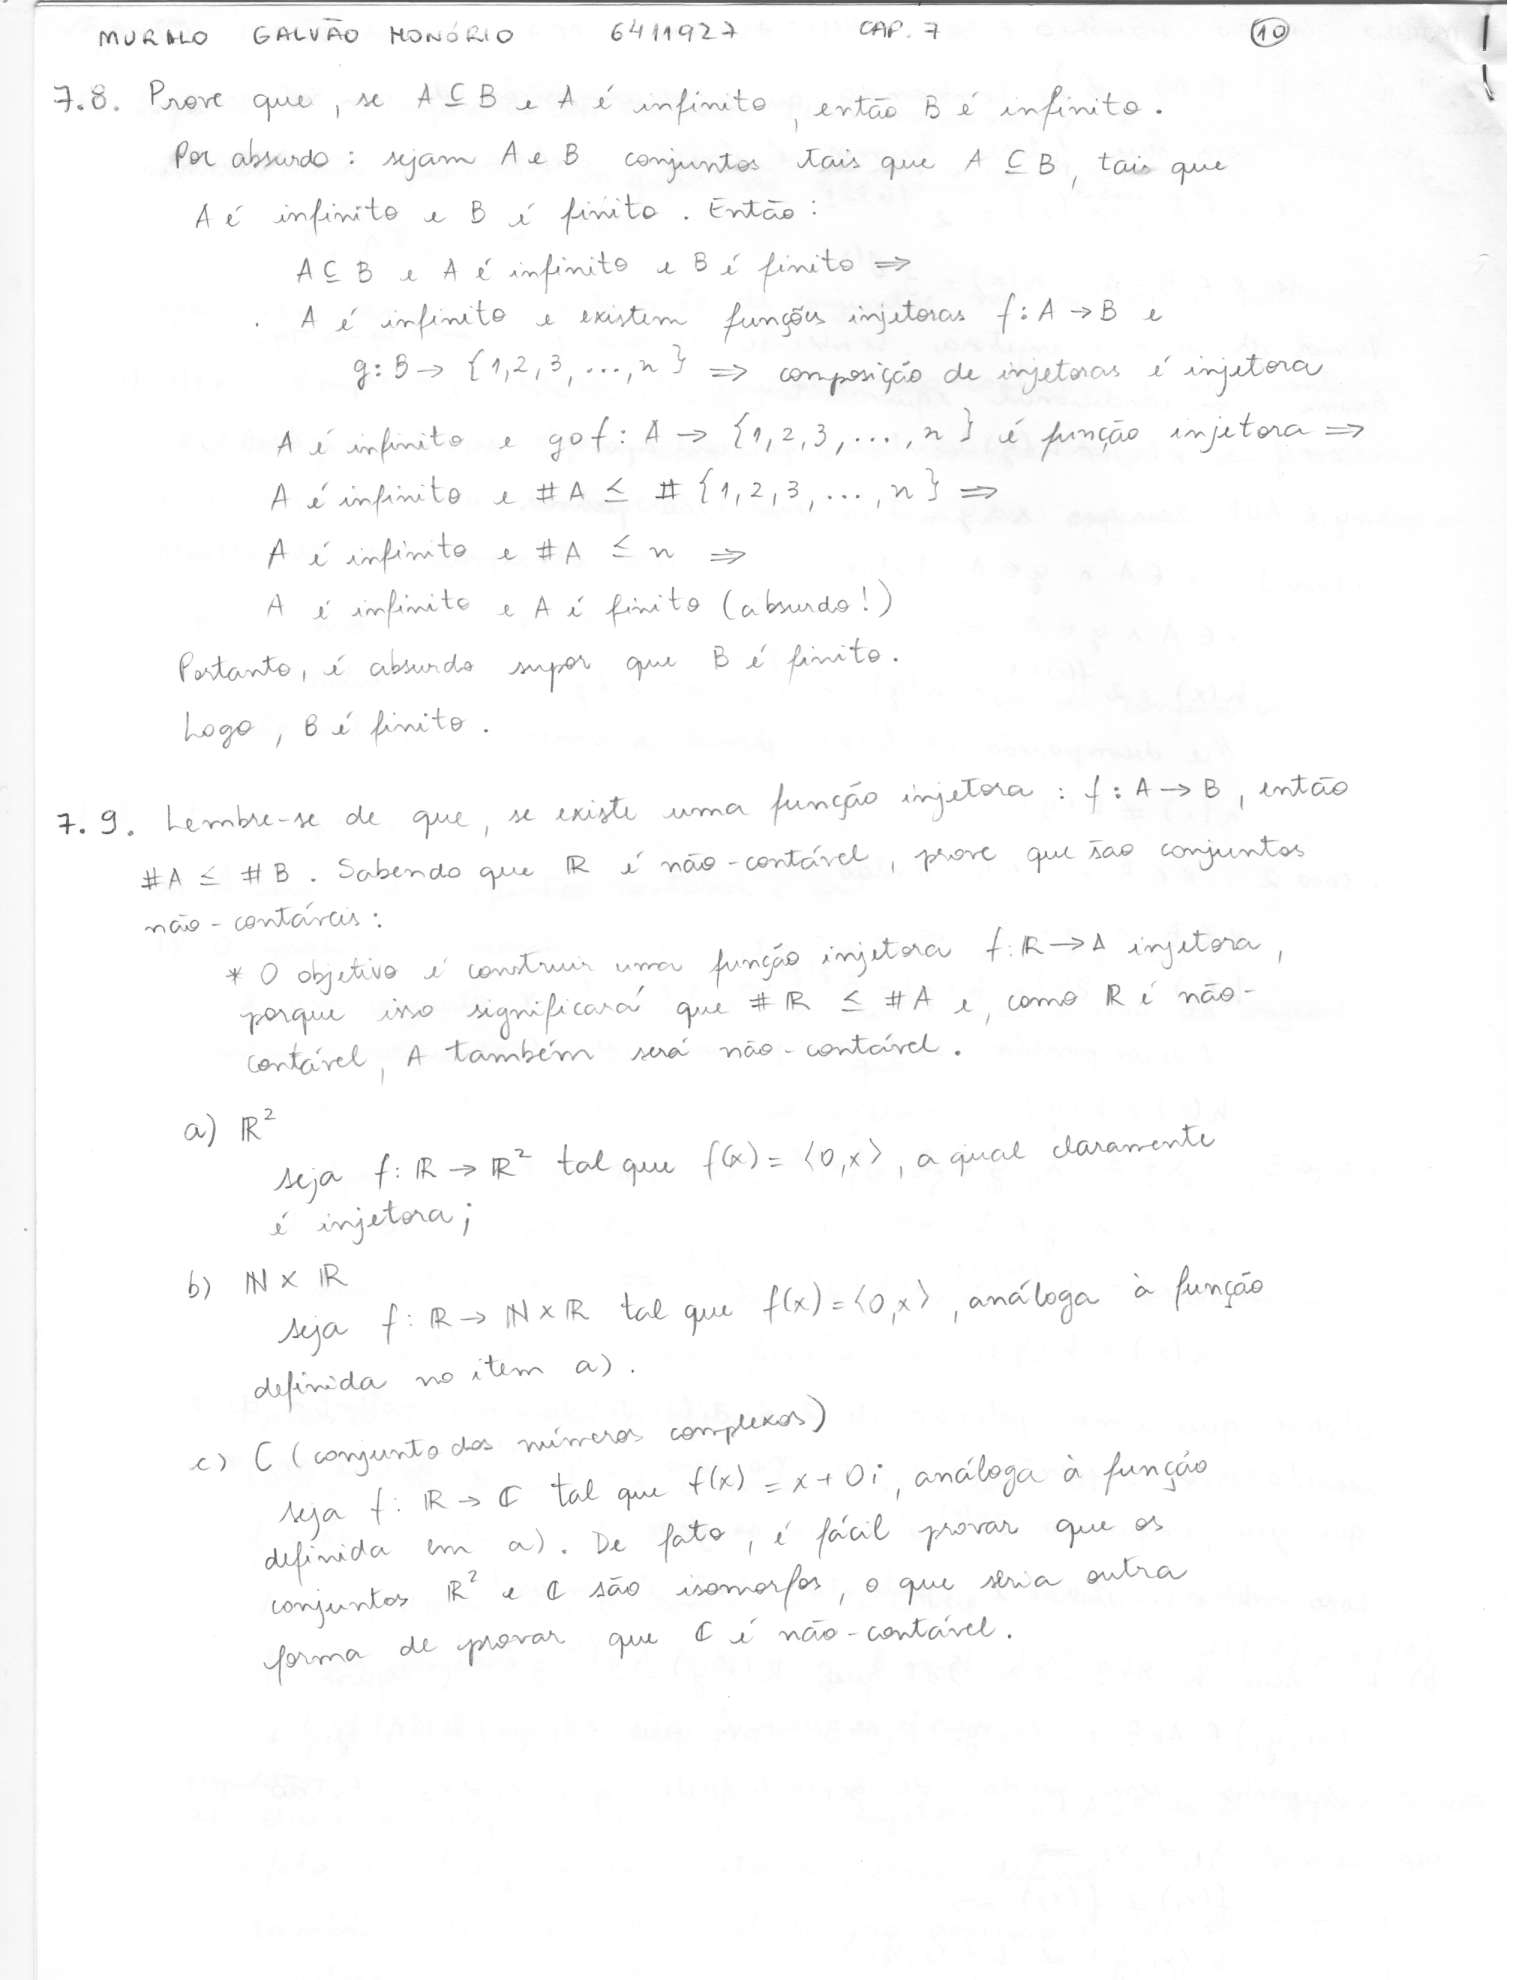 MURILO GALVÃO HONÓRIO 6411927 CAP. 7 10
7.8. Prove que, se A ⊆ B e A é infinito, então B é infinito.
Por absurdo: sejam A e B conjuntos tais que A ⊆ B, tais que
A é infinito e B é finito. Então:
A ⊆ B e A é infinito e B é finito ⇒
A é infinito e existem funções injetoras f: A → B e
g: B → {1, 2, 3, ..., n} ⇒ composição de injetoras é injetora
A é infinito e gof: A → {1, 2, 3, ..., n} é função injetora ⇒
A é infinito e #A ≤ #{1, 2, 3, ..., n} ⇒
A é infinito e #A ≤ n ⇒
A é infinito e A é finito (absurdo!)
Portanto, é absurdo supor que B é finito.
Logo, B é finito.
7.9. Lembre-se de que, se existe uma função injetora: f: A → B, então
#A ≤ #B. Sabendo que ℝ é não-contável, prove que são conjuntos
não-contáveis:
* O objetivo é construir uma função injetora f: ℝ → A injetora,
porque isso significará que #ℝ ≤ #A e, como ℝ é não-
contável, A também será não-contável.
a) ℝ²
seja f: ℝ → ℝ² tal que f(x) = ⟨0, x⟩, a qual claramente
é injetora;
b) ℕ × ℝ
seja f: ℝ → ℕ × ℝ tal que f(x) = ⟨0, x⟩, análoga à função
definida no item a).
c) C (conjunto dos números complexos)
seja f: ℝ → ℂ tal que f(x) = x + 0i, análoga à função
definida em a). De fato, é fácil provar que os
conjuntos ℝ² e ℂ são isomorfos, o que seria outra
forma de provar que ℂ é não-contável.